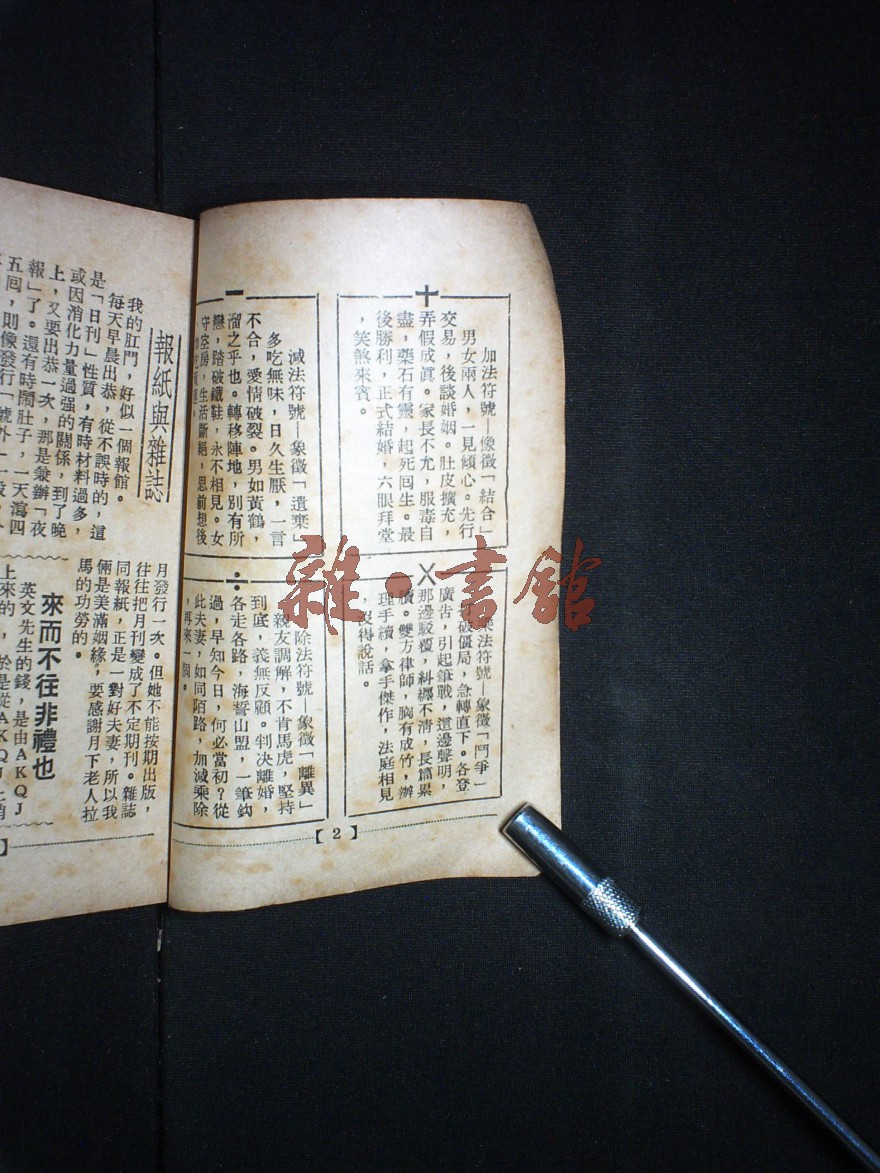 加法符號—像徵「結合」
男女兩人，一見傾心。先行
交易，後談婚姻。肚皮擴充，
弄假成眞。家長不允，服毒自
盡，藥石有靈，起死囘生。最
後勝利，正式結婚，六眼拜堂
，笑煞來賓。
法符號—象徵「鬥爭」
破僵局，急轉直下。各登
廣吿，引起筆戰，這邊聲明，
那邊駁覆，糾纒不淸，長篇累
牘。雙方律師，胸有成竹，辦
理手續，拿手傑作，法庭相見
，沒得說話。
減法符號—象徵「遺棄」
多吃無味，日久生厭，一言
不合，愛情破裂。男如黃鶴，
溜之乎也。轉移陣地，別有所
戀，踏破鐵鞋，永不相見。女
守空房，生活斷絕，思前想後
除法符號—象徵「離異」
親友調解，不肯馬虎，堅持
到底，義無反顧。判決離婚，
各走各路，海誓山盟，一筆鈎
過，早知今日，何必當初？從
此夫妻，如同陌路，加減乘除
，再來一個。
【2】
報紙與雜誌
我的肛門，好似一個報館。
每天早晨出恭，從不誤時的，這
是「日刊」性質，有時材料過多，
或因消化力量過強的關係，到了晚
上，又要出恭一次，那是兼辦「夜
報」了。還有時鬧肚子，一天瀉四
五囘，則像發行「號外」一般，
月發行一次。但她不能按期出版，
往往把月刊變成了不定期刊。雜誌
同報紙，正是一對好夫妻，所以我
倆是美滿姻緣，要感謝月下老人拉
馬的功勞的。
來而不往非禮也
英文先生的錢，是由AKQJ
上來的，於是從AKQJ上